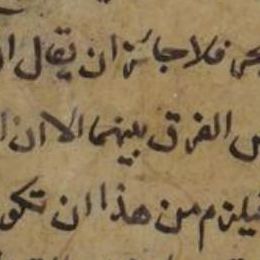 فلا جائز ان يقال
الفرق بينهما الا ان
فيلزم من هذا ان تكو